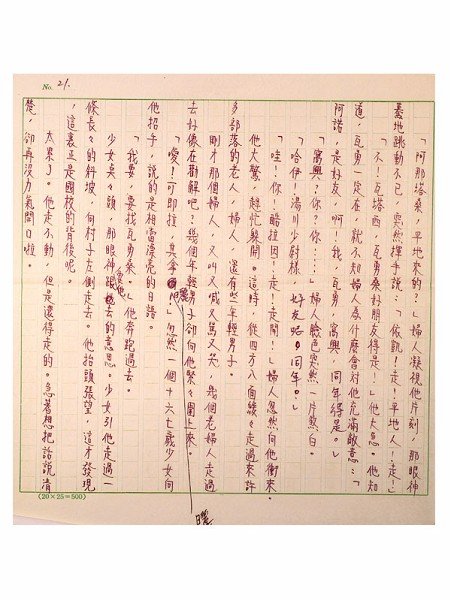 No. 21.
「阿那塔桑，平地來的？」婦人凝視他片刻，那眼神
驀地跳動不已，突然揮手說：「依凱！走！平地人！走！」
「不！瓦塔西，瓦勇桑好朋友得是！」他大急。他知
道，瓦勇一定在，就不知婦人為什麼會對他充滿敵意：「
阿諾，是好友，啊！我，瓦勇，寓興，同年得是。」
「寓興？你？你……」婦人臉色突然一片煞白。
「哈伊！湯川少尉樣 好友呢。同年。」
「哇！你！酷拉因！走！走開！」婦人忽然向他衝來。
他大驚，趕忙躲開。這時，從四方八面緩々走過來許
多部落的老人，婦人，還有些年輕男子。
剛才那個婦人，又叫又喊又罵又哭，幾個老婦人走過
去好像在勸解吧？幾個年輕男子卻向他緊々圍上來。
「嗳！可即拉，真事 」忽然一個十六七歲少女向
他招手，說的是相當漂亮的日語。
「我要，要找瓦勇桑。」他奔跑過去。
少女臭々頭，那眼神 愛他 的意思。少女引他走過一
條長々的斜坡，向村子左側走去。他抬頭張望，這才發現
，這裏正是國校的背後呢。
太累了。他走不動，但是還得走的。急著想把話說清
楚，卻再沒力氣開口啦。
(20×25=500)